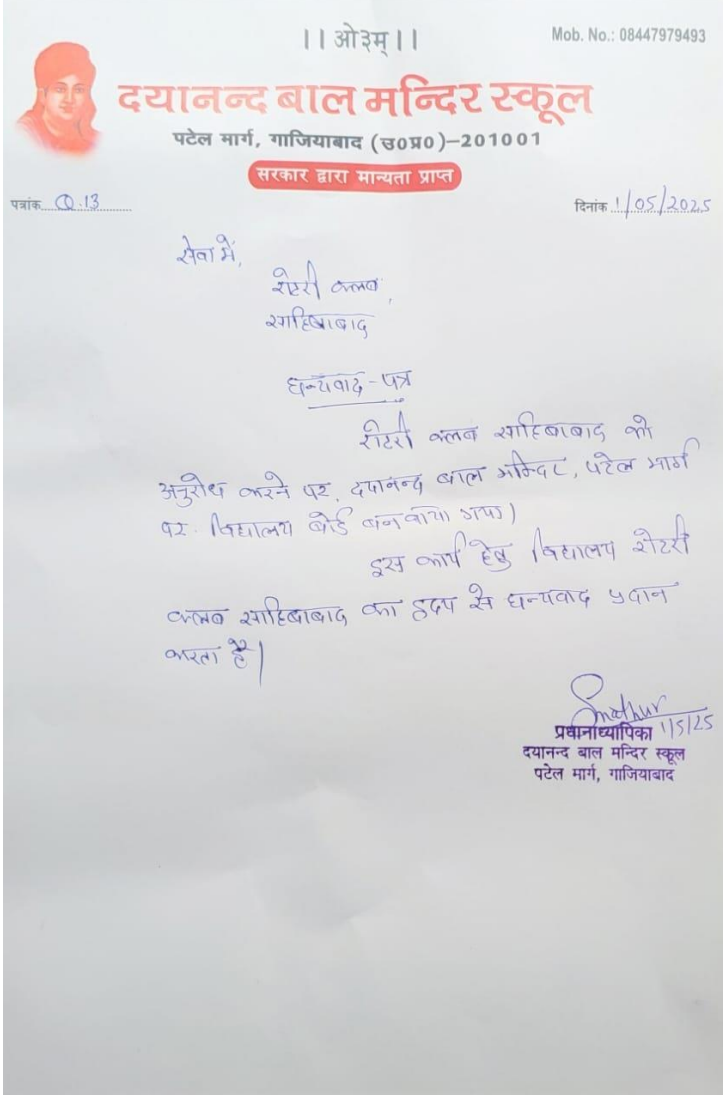 ।। ओ३म् ।।
Mob. No.: 08447979493
दयानन्द बाल मन्दिर स्कूल
पटेल मार्ग, गाजियाबाद (उ०प्र०)–201001
सरकार द्वारा मान्यता प्राप्त
पत्रांक Q.13
दिनांक 1/05/2025
सेवा में,
रोटरी क्लब,
साहिबाबाद
धन्यवाद-पत्र
रोटरी क्लब साहिबाबाद को
अनुरोध करने पर, दयानन्द बाल मन्दिर, पटेल मार्ग
पर विद्यालय बोर्ड बनवाया गया।
इस कार्य हेतु विद्यालय रोटरी
क्लब साहिबाबाद का हृदय से धन्यवाद प्रदान
करता है।
Smathur
1/5/25
प्रधानाध्यापिका
दयानन्द बाल मन्दिर स्कूल
पटेल मार्ग, गाजियाबाद